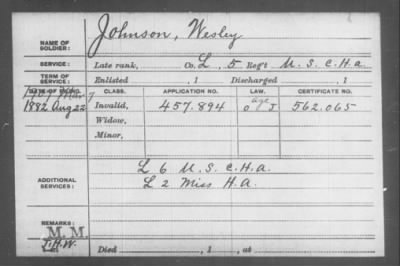 Johnson, Wesley
NAME OF SOLDIER:
SERVICE: Late rank, Co. L, 5 Reg't U. S. C. H. A.
TERM OF SERVICE: Enlisted , 1 Discharged , 1
DATE OF FILING. CLASS. APPLICATION NO. LAW. CERTIFICATE NO.
1907 Mar 7 age
1882 Aug 22 Invalid, 457.894 O J 562.065
Widow,
Minor,
ADDITIONAL SERVICES:
L 6 U. S. C. H. A.
L 2 Miss H. A.
REMARKS:
M. M.
J.H.W. Died , 1 , at